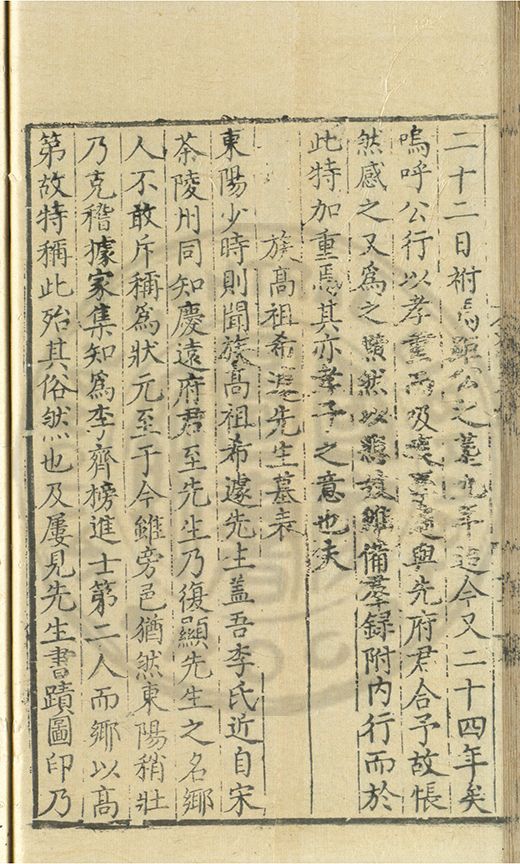 二十二日祔焉距公之葬九年迨今又二十四年矣
嗚呼公行以孝重而汲與先府君合予故悵
然感之又為之贖然以雖備羣錄附内行而於
此特加重焉其亦孝子之意也夫
族高祖希蘧先生墓表
東陽少時則聞族高祖希蘧先生蓋吾李氏近自宋
茶陵州同知慶遠府君至先生乃復顯先生之名鄉
人不敢斥稱為狀元至于今雖旁邑猶然東陽稍壯
乃克稽據家集知為李齊榜進士第二人而鄉以高
第故特稱此殆其俗然也及屢見先生書蹟圖印乃